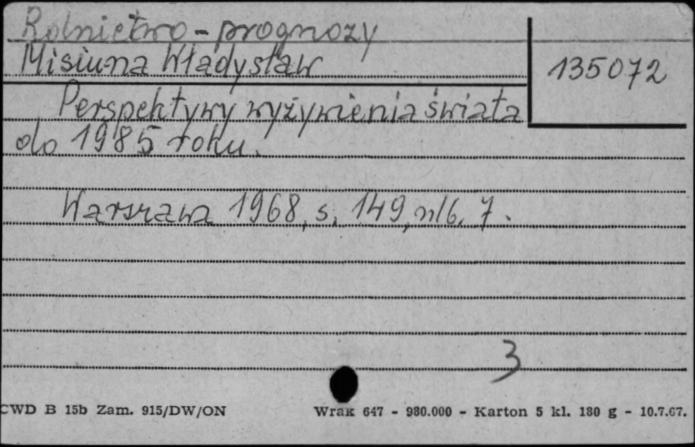 Rolnictwo - prognozy
Misiuna Władysław
135072
Perspektywy wyżywienia świata
do 1985 roku.
Warszawa 1968, s. 149, nlb. 7.
3
CWD B 15b Zam. 915/DW/ON
Wrak 647 - 980.000 - Karton 5 kl. 180 g - 10.7.67.